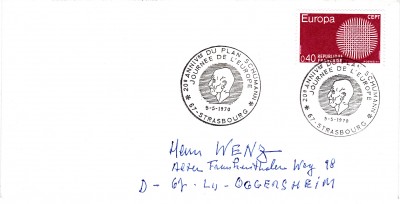 Europa
CEPT
REPUBLIQUE
FRANÇAISE
0,40
20e ANNIVM DU PLAN SCHUMANN
JOURNÉE DE L'EUROPE
8-5-1970
* 67-STRASBOURG *
20e ANNIVM DU PLAN SCHUMANN
JOURNÉE DE L'EUROPE
8-5-1970
* 67-STRASBOURG *
Herrn WENZ
Alter Frankenthaler Weg 98
D - 67 - LU - OGGERSHEIM